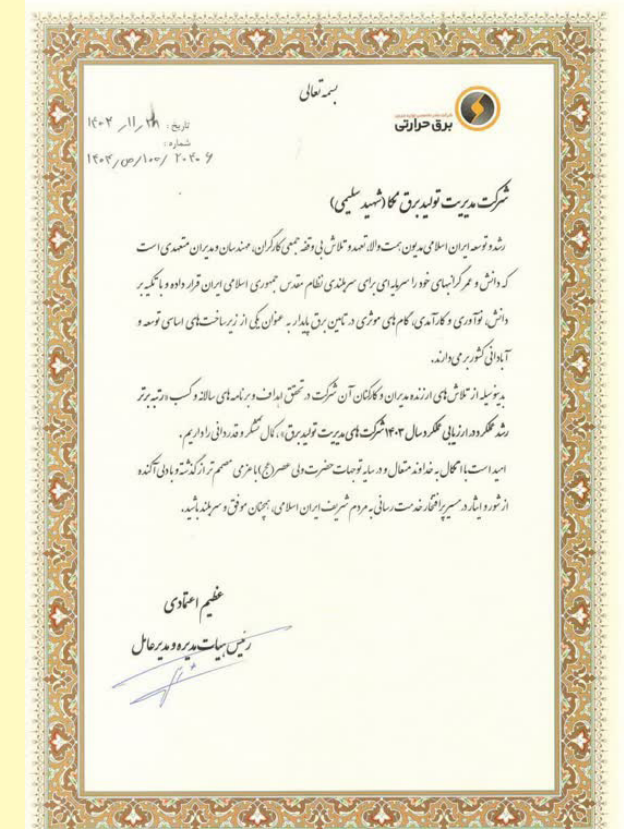 بسمه تعالی
برق حرارتی
تاریخ :
شماره :
۱۴۰۳/ص/۱۰۰/ ۲۰۴۰۶
شرکت مدیریت تولید برق نکا (شهید سلیمی)
رشد و توسعه ایران اسلامی مدیون همت والا، تعهد و تلاش بی وقفه جمعی کارگران، مهندسان و مدیران متعهدی است
که دانش و عمر گرانبهای خود را سرمایه ای برای سربلندی نظام مقدس جمهوری اسلامی ایران قرار داده و با تکیه بر
دانش، نوآوری و کارآمدی، گام های موثری در تامین برق پایدار به عنوان یکی از زیرساخت های اساسی توسعه و
آبادانی کشور بر می دارند.
بدینوسیله از تلاش های ارزنده مدیران و کارکنان آن شرکت در تحقق اهداف و برنامه های سالانه و کسب «رتبه برتر
رشد عملکرد در ارزیابی عملکرد سال ۱۴۰۳ شرکت های مدیریت تولید برق»، کمال تشکر و قدردانی را داریم.
امید است با اتکال به خداوند متعال و در سایه توجهات حضرت ولی عصر (عج) با عزمی مصمم تر از گذشته و با دلی آکنده
از شور و ایثار در مسیر پرافتخار خدمت رسانی به مردم شریف ایران اسلامی، همچنان موفق و سربلند باشید.
عظیم اعتمادی
رئیس هیات مدیره و مدیرعامل